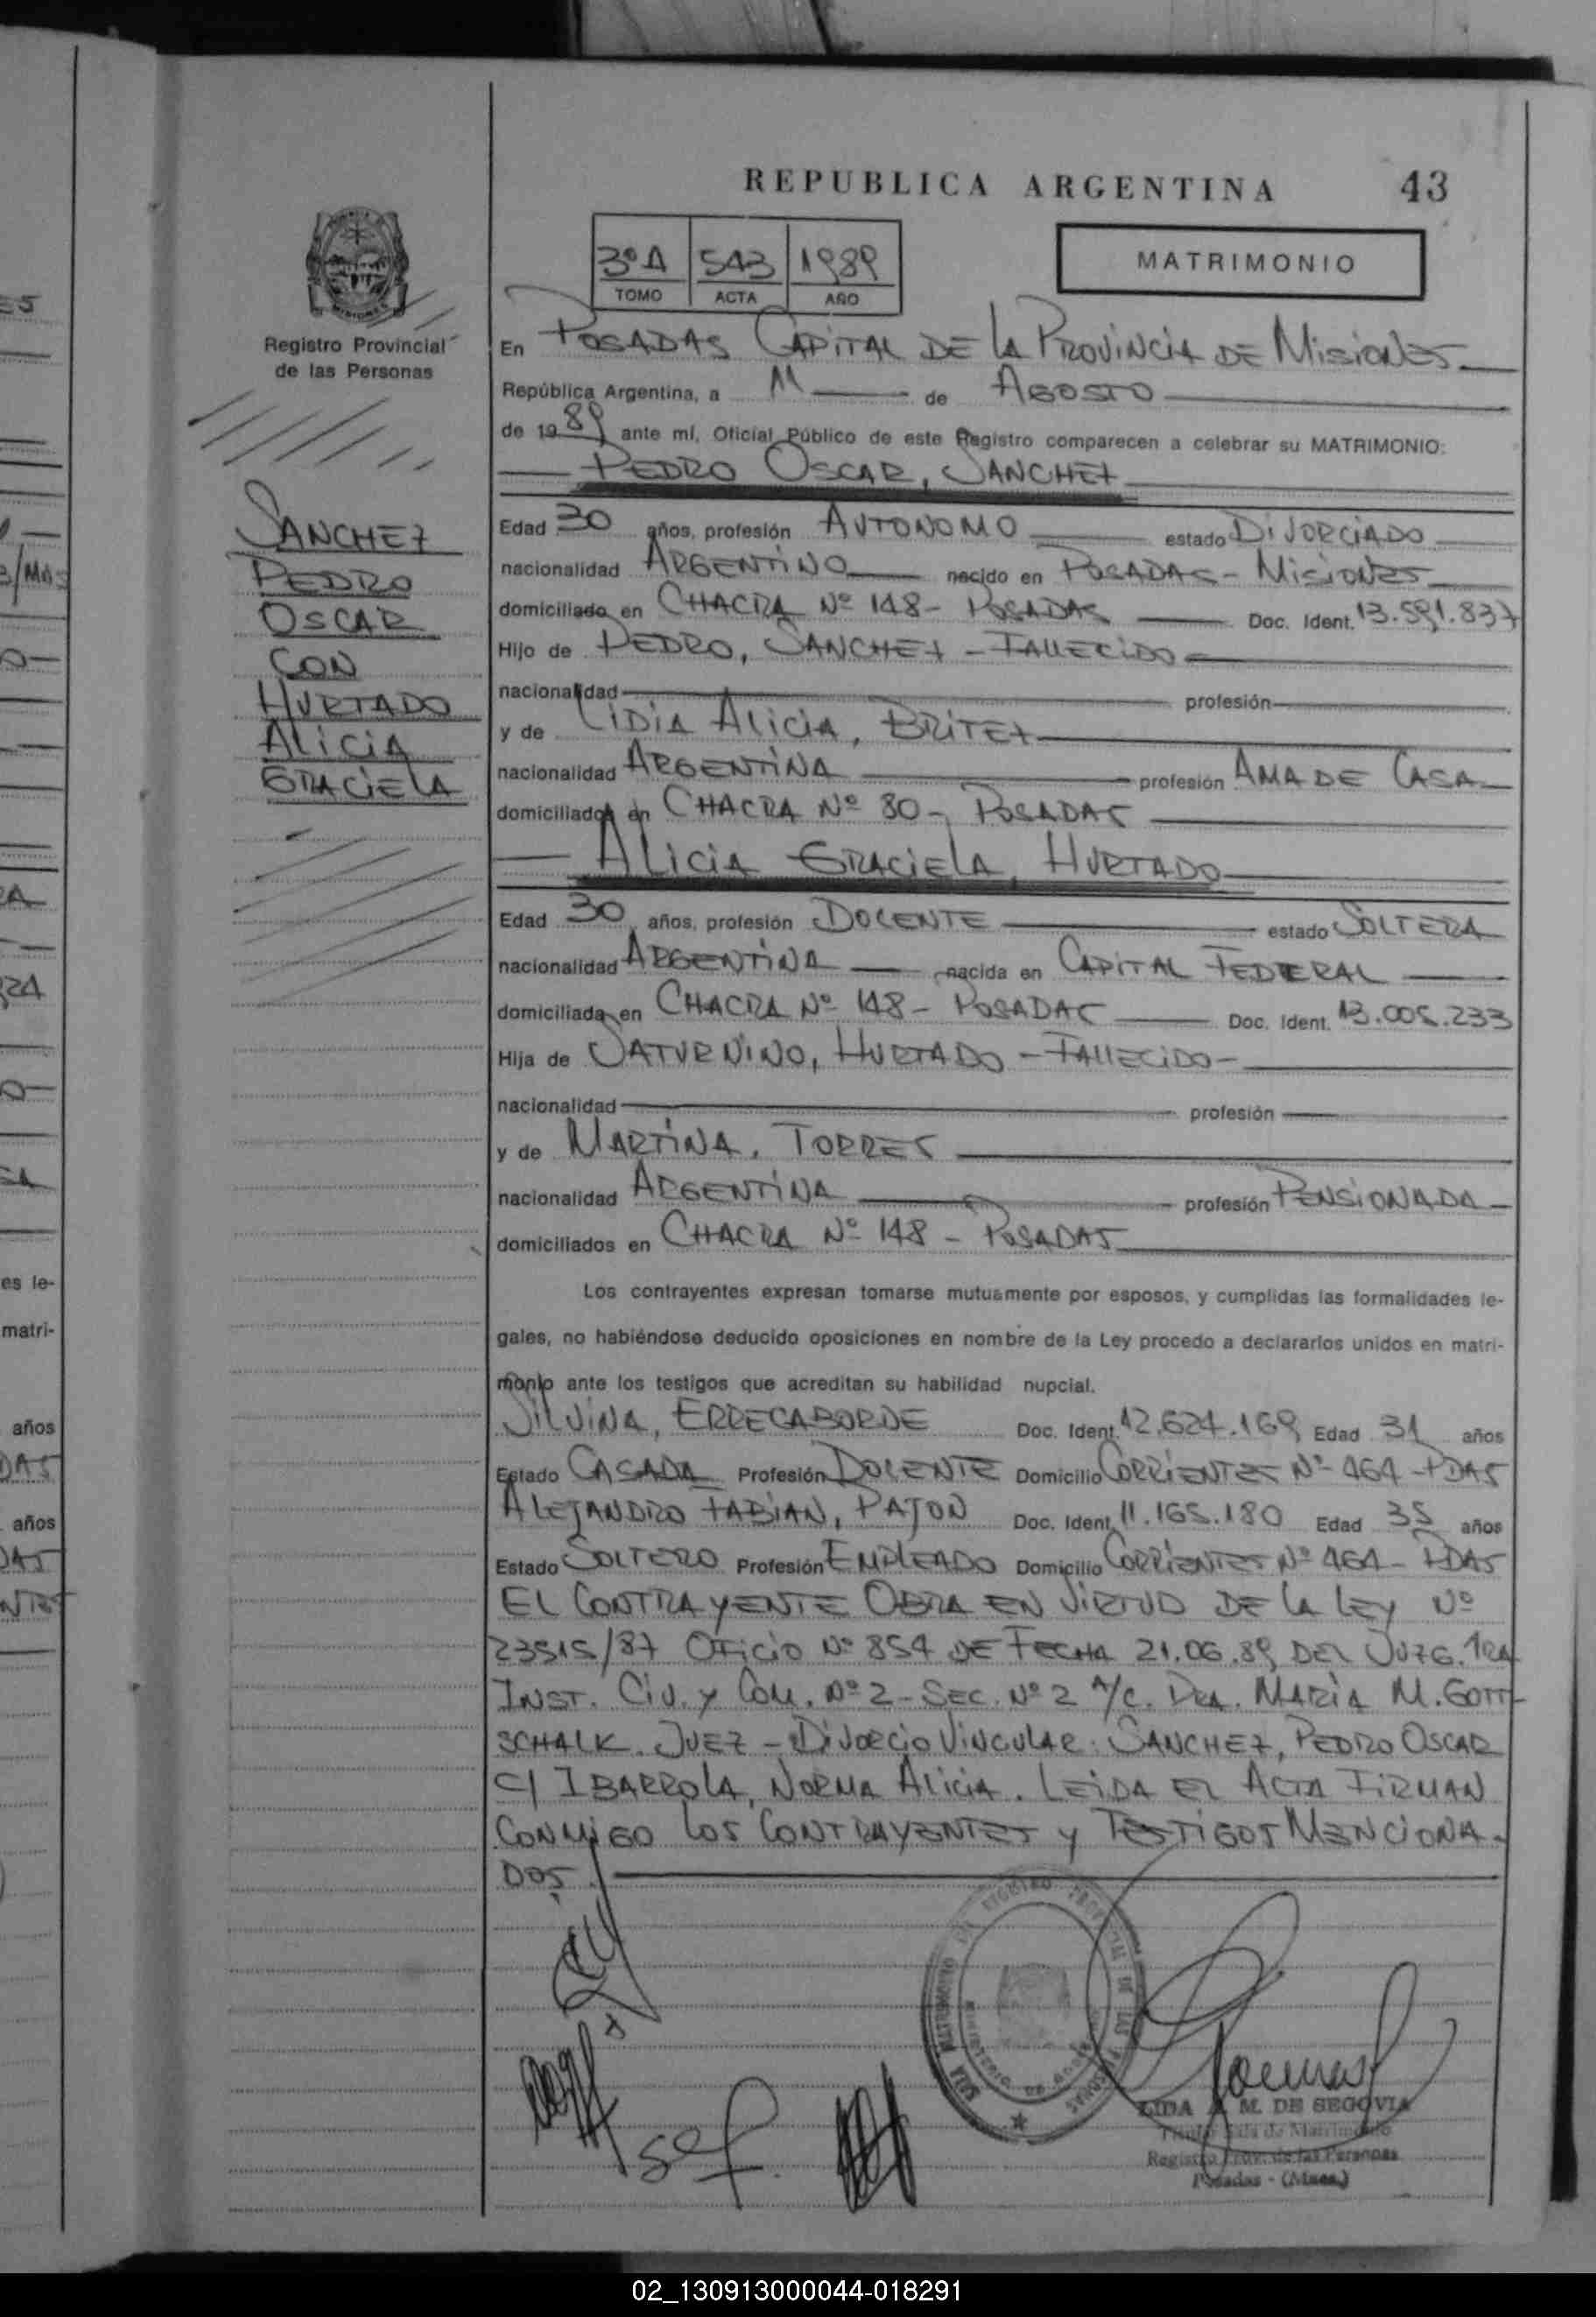 REPUBLICA ARGENTINA 43
3º A 543 1989
TOMO ACTA AÑO
MATRIMONIO
MISIONES
Registro Provincial
de las Personas
SANCHEZ
PEDRO
OSCAR
CON
HURTADO
ALICIA
GRACIELA
En POSADAS CAPITAL DE LA PROVINCIA DE MISIONES
República Argentina, a 11 de AGOSTO
de 1989 ante mí, Oficial Público de este Registro comparecen a celebrar su MATRIMONIO:
PEDRO OSCAR, SANCHEZ
Edad 30 años, profesión AUTONOMO estado DIVORCIADO
nacionalidad ARGENTINO nacido en POSADAS - MISIONES
domiciliado en CHACRA Nº 148 - POSADAS Doc. Ident. 13.591.837
Hijo de PEDRO, SANCHEZ - FALLECIDO
nacionalidad profesión
y de LIDIA ALICIA, BRITEZ
nacionalidad ARGENTINA profesión AMA DE CASA
domiciliados en CHACRA Nº 80 - POSADAS
ALICIA GRACIELA, HURTADO
Edad 30 años, profesión DOCENTE estado SOLTERA
nacionalidad ARGENTINA nacida en CAPITAL FEDERAL
domiciliada en CHACRA Nº 148 - POSADAS Doc. Ident. 13.005.233
Hija de SATURNINO, HURTADO - FALLECIDO -
nacionalidad profesión
y de MARTINA, TORRES
nacionalidad ARGENTINA profesión PENSIONADA -
domiciliados en CHACRA Nº 148 - POSADAS
Los contrayentes expresan tomarse mutuamente por esposos, y cumplidas las formalidades le-
gales, no habiéndose deducido oposiciones en nombre de la Ley procedo a declararlos unidos en matri-
monio ante los testigos que acreditan su habilidad nupcial.
SILVINA, ERRECABORDE Doc. Ident. 12.624.169 Edad 31 años
Estado CASADA Profesión DOCENTE Domicilio CORRIENTES Nº 464 - PDAS
ALEJANDRO FABIAN, PAJON Doc. Ident. 11.165.180 Edad 35 años
Estado SOLTERO Profesión EMPLEADO Domicilio CORRIENTES Nº 464 - PDAS
EL CONTRAYENTE OBRA EN VIRTUD DE LA LEY Nº
23515/87 OFICIO Nº 854 DE FECHA 21.06.89 DEL JUZG. 1RA
INST. CIV. Y COM. Nº 2 - SEC. Nº 2 A/C. DRA. MARIA M. GOTT-
SCHALK. JUEZ - DIVORCIO VINCULAR: SANCHEZ, PEDRO OSCAR
C/ IBARROLA, NORMA ALICIA. LEIDA EL ACTA FIRMAN
CONMIGO LOS CONTRAYENTES Y TESTIGOS MENCIONA-
DOS.
M. DE SEGOVIA
Posadas - (Mnes.)
es le-
matri-
años
años
02_130913000044-018291